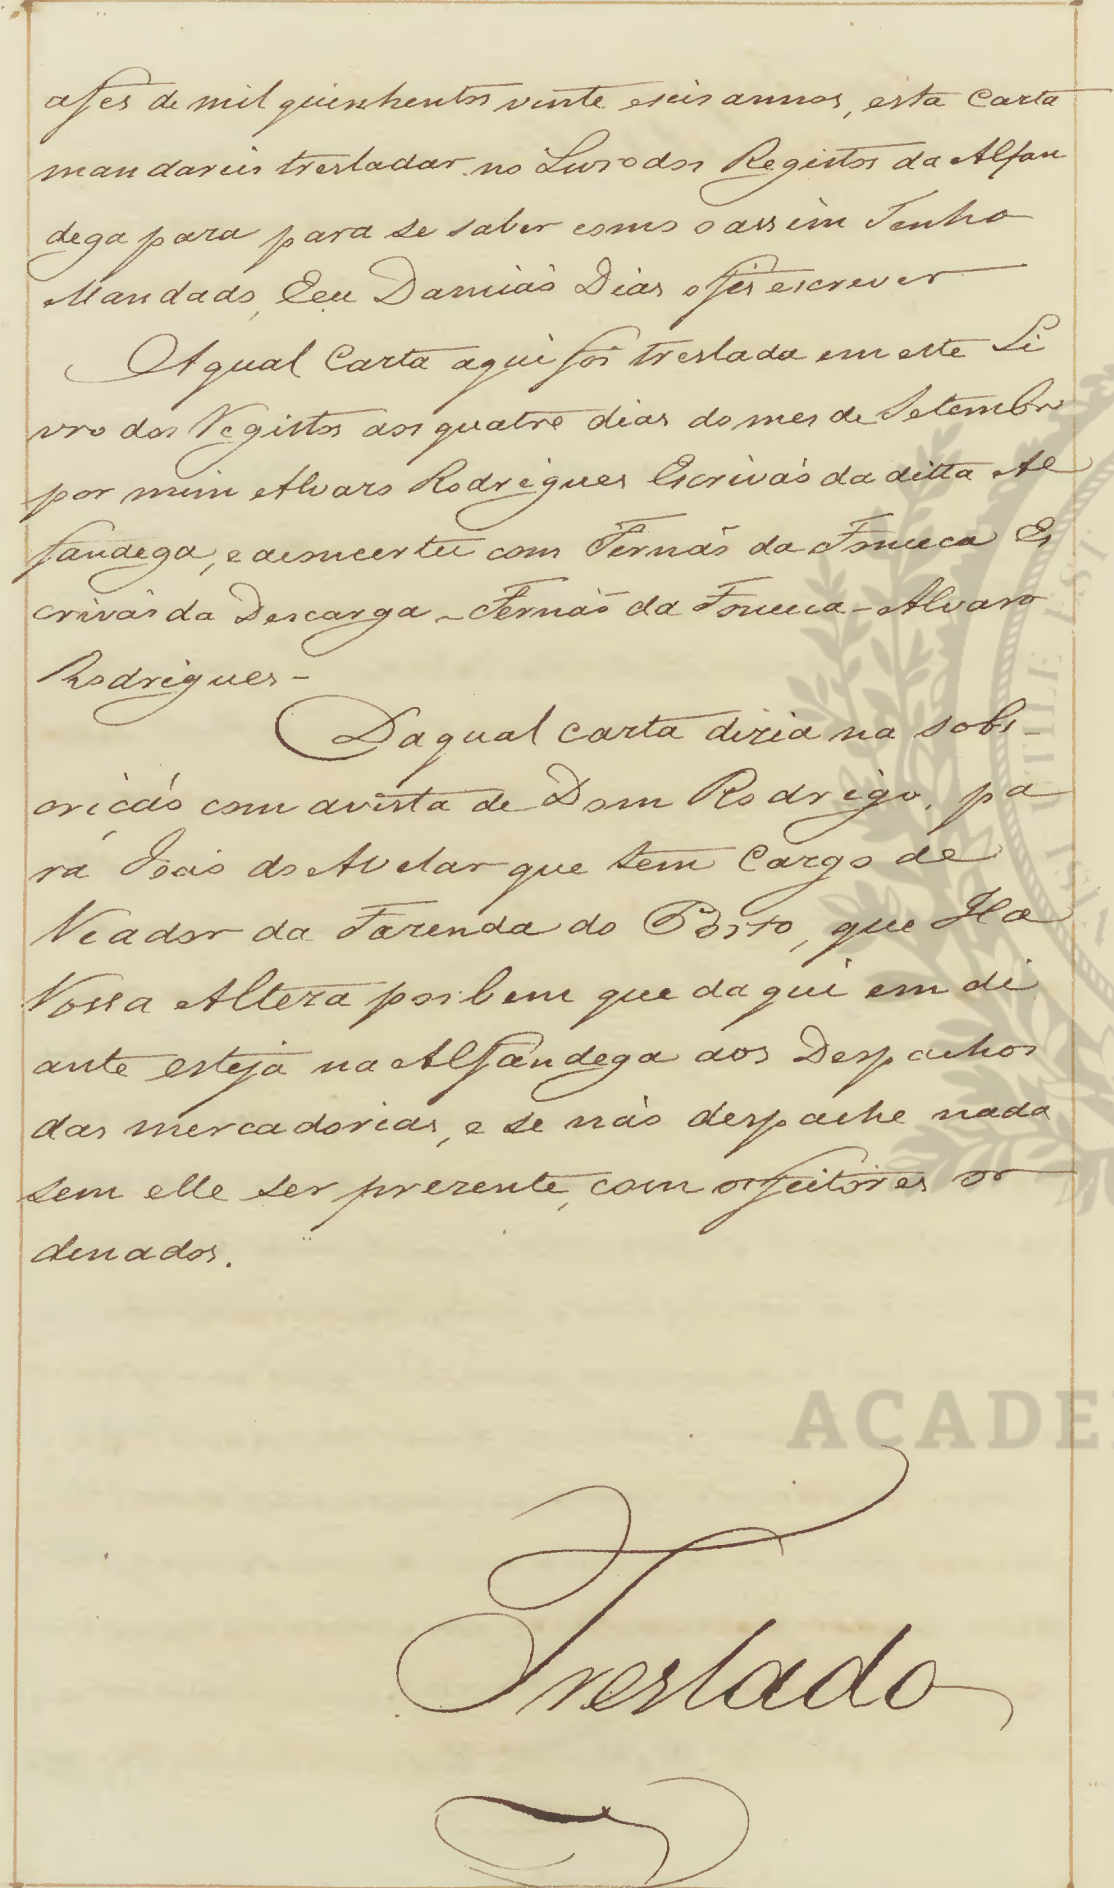 afes de mil quinhentos vinte eseis annos, esta Carta
mandareis tresladar no Livro dos Registos da Alfan
dega para para se saber como o assim Tenho
Mandado, Eeu Damiaõ Dias o fes escrever
Aqual Carta aqui foi treslada em este Li
vro dos Registos aos quatro dias do mes de Setembro
por mim Alvaro Rodrigues Escrivaõ da ditta Al
fandega, e aconcertei com Fernaõ da Fonceca Es
crivaõ da Descarga - Fernaõ da Fonceca - Alvaro
Rodrigues -
Daqual carta dizia na sobs-
cricaõ com avista de Dom Rodrigo, pa
ra Joaõ do Avelar que tem Cargo de
Veador da Fazenda do Porto, que Ha
Vossa Alteza por bem que daqui em di
ante esteja na Alfandega aos Despachos
das mercadorias, e se naõ despache nada
sem elle ser prezente, com os feitores or
denados.
Treslado
ACADE
UTILE EST